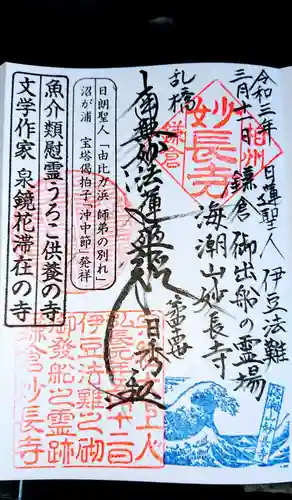 令和三年 日蓮聖人 伊豆法難
三月十一日 鎌倉 御出船の霊場
相州
妙長寺
鎌倉
海潮山妙長寺
乱橋
南無妙法蓮華経
日朗聖人「由比ヶ浜 師弟の別れ」
沼が浦 宝塔偈拍子「沖中節」発祥
魚介類慰霊うろこ供養の寺
文学作家 泉鏡花滞在の寺
伊豆法難之砌
御發船之霊跡
鎌倉妙長寺